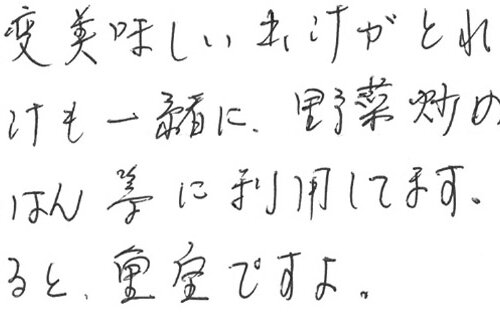 変美味しいお汁がとれ
けも一緒に、野菜炒め
はん等に利用してます。
ると、重宝ですよ。